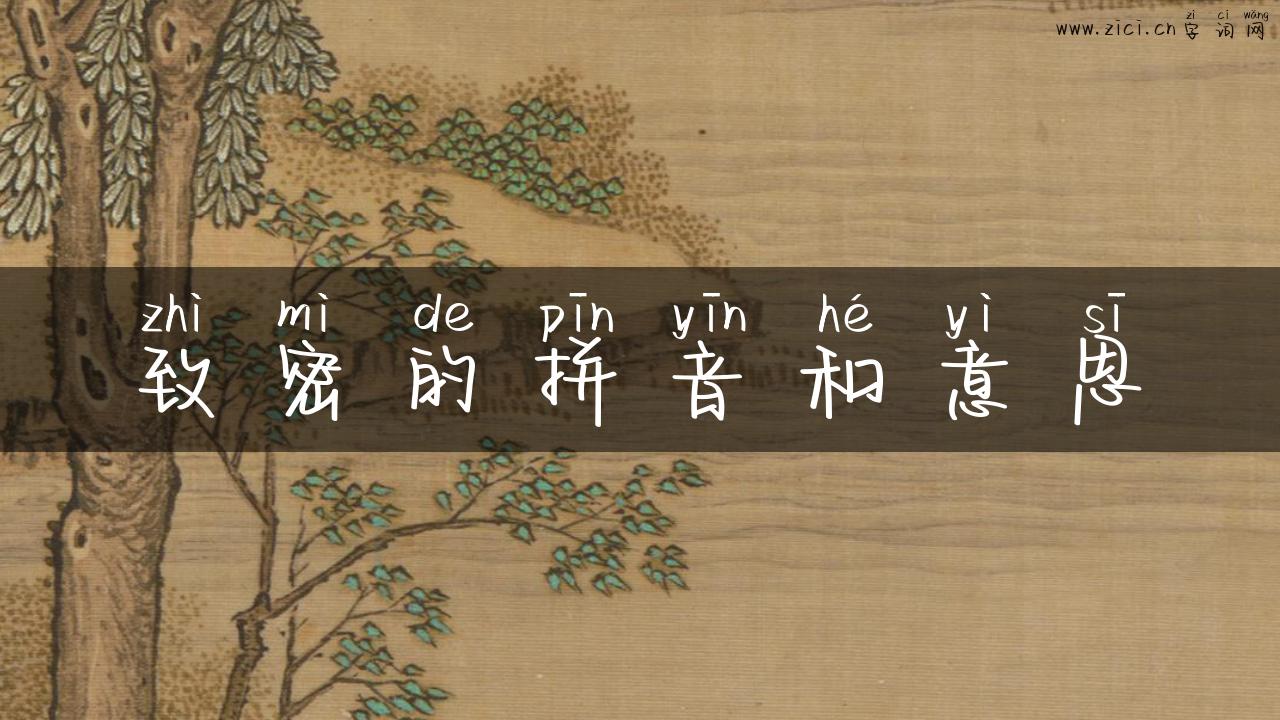 zì cí wǎng
www.zici.cn 字词网
zhì mì de pīn yīn hé yì sī
致密的拼音和意思